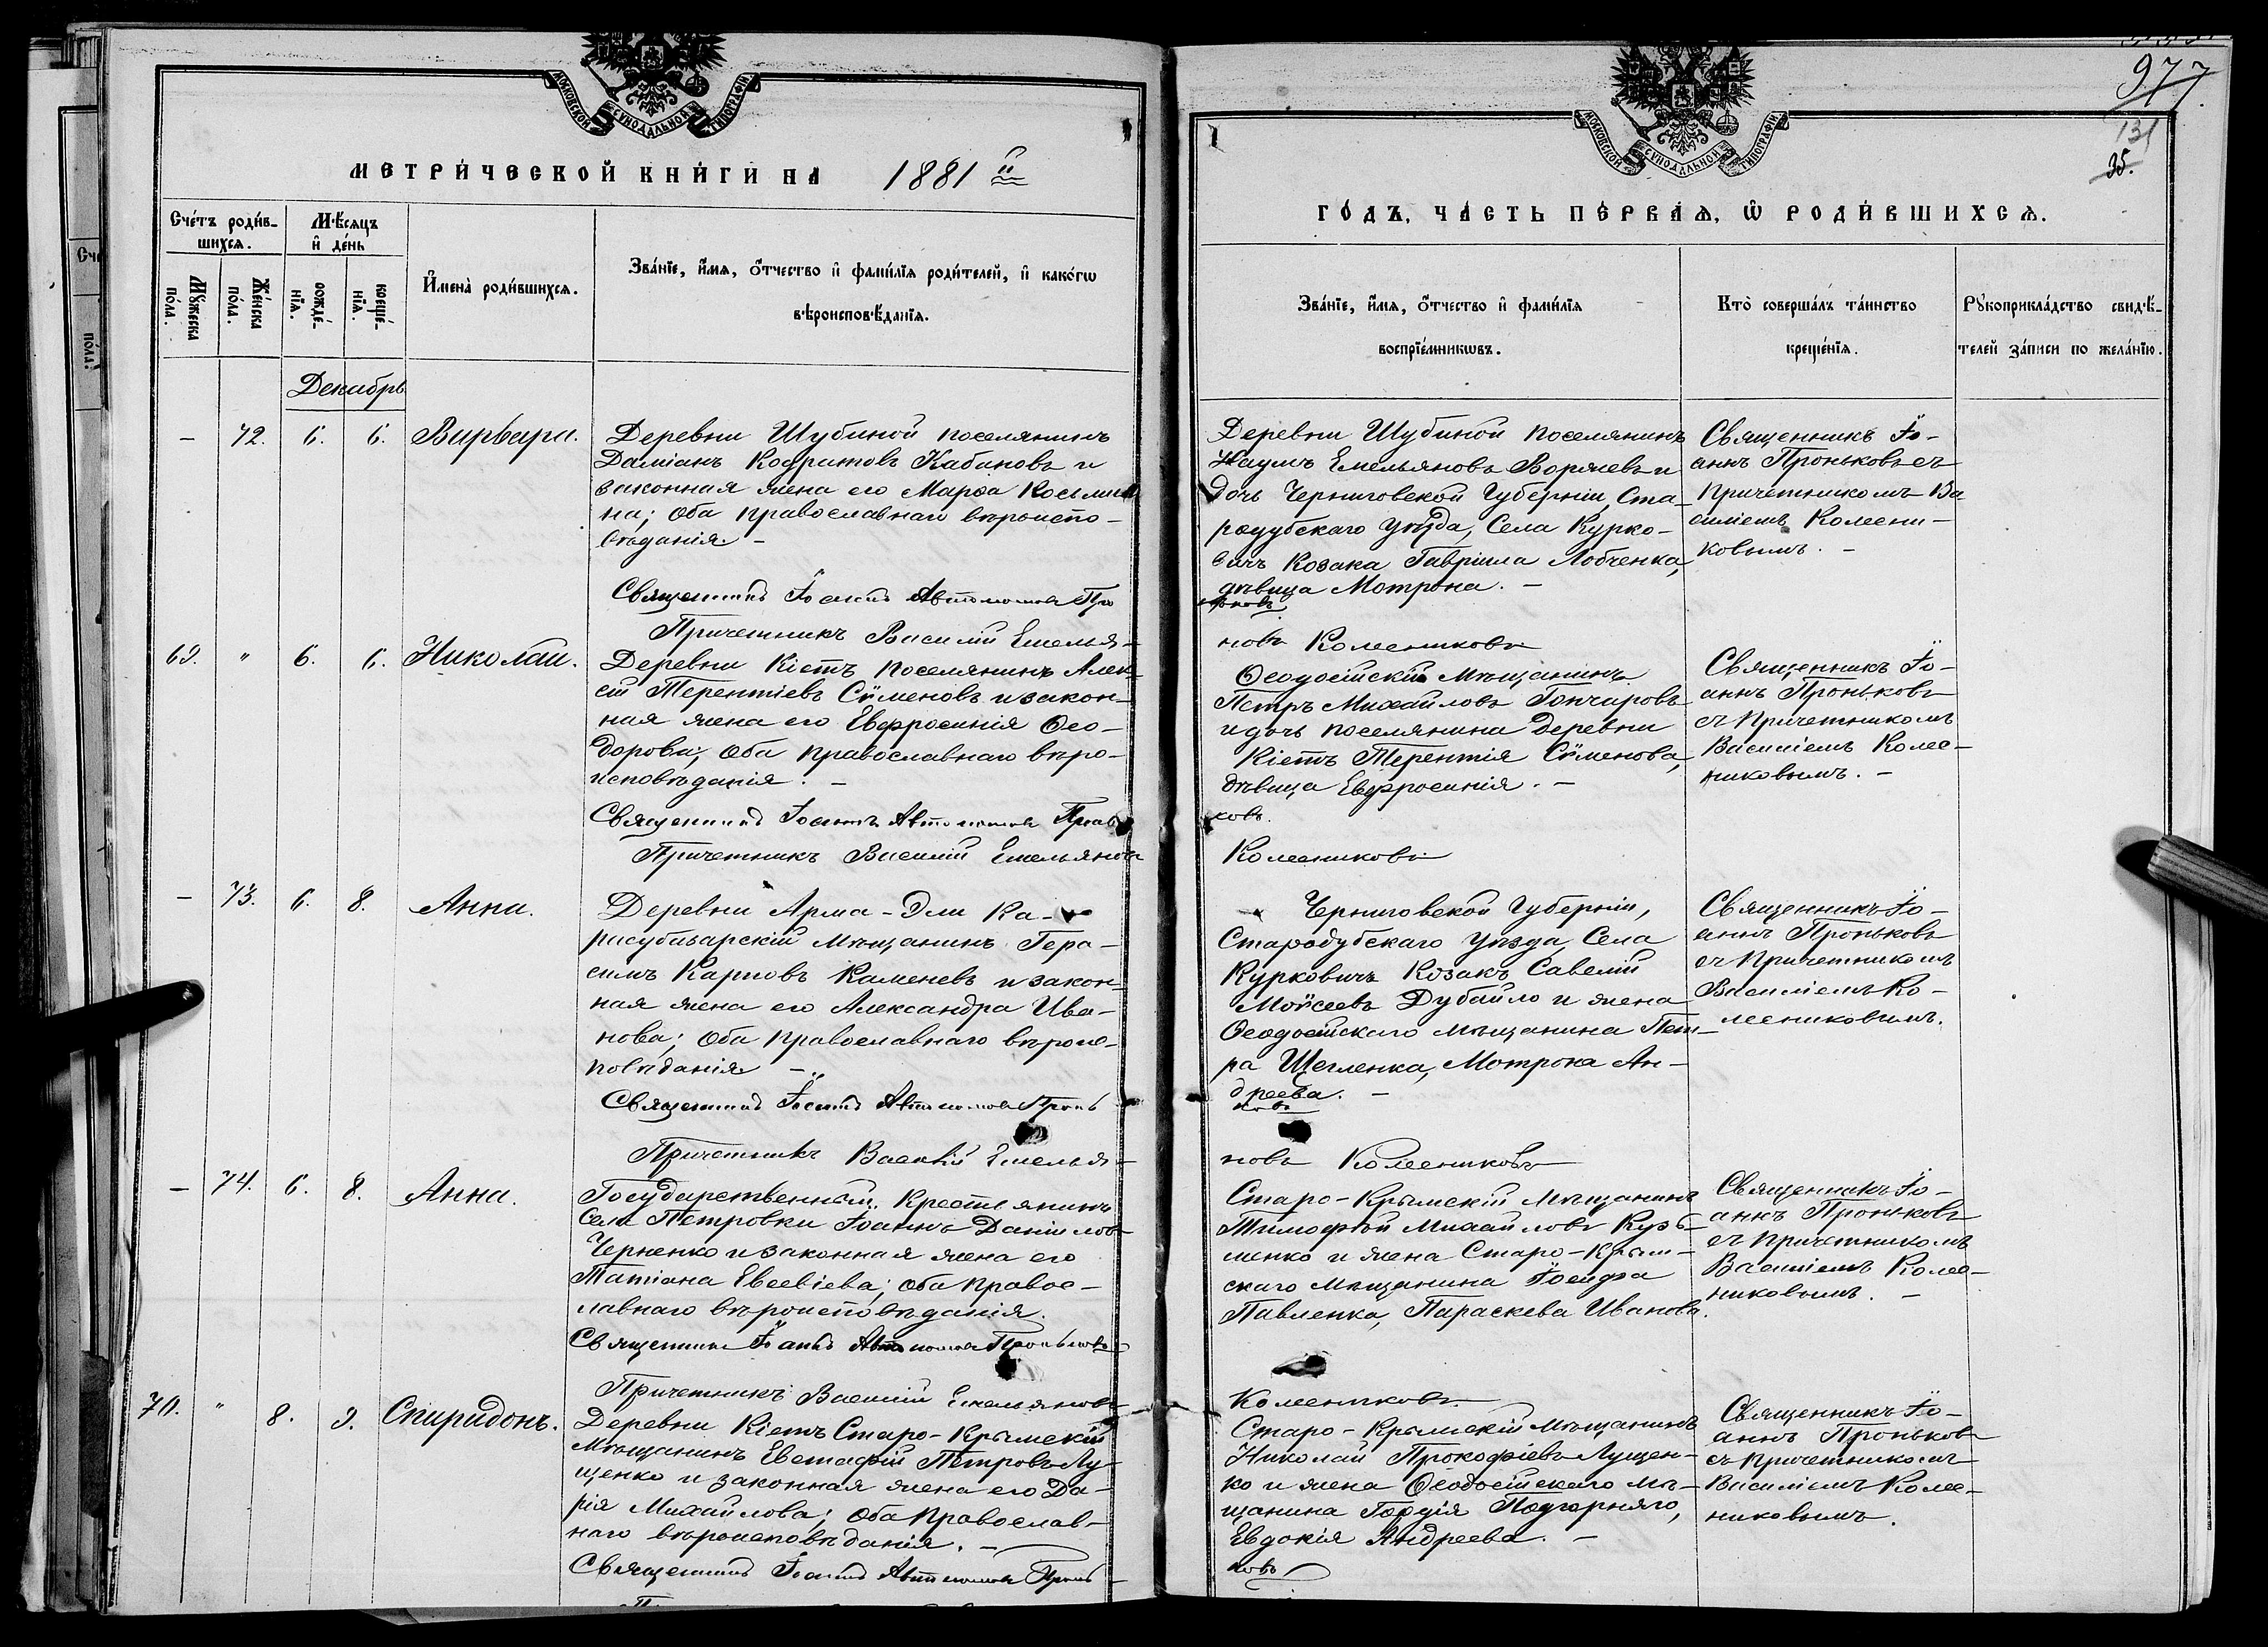 МОСКОВСКОЙ СѴНОДАЛЬНОЙ ТИПОГРАФІИ
МЕТРИЧЕСКОЙ КНИГИ НА 1881й
Счетъ родив-
шихся.
Мѣсяцъ
и день
Мужеска
пола.
Женска
пола.
рожде-
нія.
креще-
нія.
Имена родившихся.
Званіе, имя, отчество и фамилія родителей, и какого
вѣроисповѣданія.
Декабрь
– 72. 6. 6. Варвара.
Деревни Шубиной поселянинъ
Даміанъ Кодратовъ Кабановъ и
законная жена его Марѳа Косьми
на; оба православнаго вѣроиспо-
вѣданія. –
Священникъ Іоаннъ Автономовъ Про
Причетникъ Василій Емелья-
69. " 6. 6. Николай.
Деревни Кіетъ поселянинъ Алек-
сій Терентіевъ Сѵменовъ и закон-
ная жена его Евфросинія Ѳео-
дорова; оба православнаго вѣро-
исповѣданія. –
Священникъ Іоаннъ Автономовъ Пронь
Причетникъ Василій Емельяновъ
– 73. 6. 8. Анна.
Деревни Арма-Эли Ка-
расубазарскій мѣщанинъ Гера-
симъ Карповъ Каменевъ и закон-
ная жена его Александра Ива-
нова; оба православнаго вѣроис-
повѣданія –
Священникъ Іоаннъ Автономовъ Пронь
Причетникъ Василій Емелья-
– 74. 6. 8. Анна.
Государственный крестьянинъ
села Петровки Іоаннъ Даніиловъ
Черненко и законная жена его
Татіана Евсевіева; оба правос-
лавнаго вѣроисповѣданія.
Священникъ Іоаннъ Автономовъ Проньковъ
Причетникъ Василій Емельяновъ
70. " 8. 9. Спиридонъ.
Деревни Кіетъ Старо-Крымскій
мѣщанинъ Евстафій Петровъ Лу-
щенко и законная жена его Да-
рія Михайлова; оба православ-
наго вѣроисповѣданія. –
Священникъ Іоаннъ Автономовъ Пронь-
977
131
35.
МОСКОВСКОЙ СѴНОДАЛЬНОЙ ТИПОГРАФІИ
ГОДЪ, ЧАСТЬ ПЕРВАЯ, Ѡ РОДИВШИХСЯ.
Званіе, имя, отчество и фамилія
воспріемниковъ.
Кто совершалъ таинство
крещенія.
Рукоприкладство свидѣ-
телей записи по желанію.
Деревни Шубиной поселянинъ
Наумъ Емельяновъ Воряевъ и
дочь Черниговской Губерніи, Ста-
родубскаго уѣзда, села Курко-
вичъ козака Гавріила Лобченка,
дѣвица Мотрона. –
Священникъ Іо-
аннъ Проньковъ съ
причетникомъ Ва
силіемъ Колесни-
ковымъ. –
ньковъ
новъ Колесниковъ
Ѳеодосійскій мѣщанинъ
Петръ Михайловъ Гончаровъ
и дочь поселянина деревни
Кіетъ Терентія Сѵменова,
дѣвица Евфросинія. –
Священникъ Іо-
аннъ Проньковъ
съ причетникомъ
Василіемъ Колес-
никовымъ. –
ковъ.
Колесниковъ
Черниговской Губерніи,
Стародубскаго уѣзда, села
Курковичъ козакъ Савелій
Моисеевъ Дубайло и жена
Ѳеодосійскаго мѣщанина Пет-
ра Щегленка, Мотрона Ан-
дреева. –
Священникъ Іо-
аннъ Проньковъ
съ причетникомъ
Василіемъ Ко-
лесниковымъ.
ковъ
новъ Колесниковъ
Старо-Крымскій мѣщанинъ
Тимофей Михайловъ Кузь-
менко и жена Старо-Крым-
скаго мѣщанина Іосифа
Павленка, Параскева Иванова.
Священникъ Іо-
аннъ Проньковъ
съ причетникомъ
Василіемъ Колес-
никовымъ. –
Колесниковъ
Старо-Крымскій мѣщанинъ
Николай Прокофіевъ Лущен-
ко и жена Ѳеодосійскаго мѣ-
щанина Гордія Подгорняго,
Евдокія Андреева. –
Священникъ Іо-
аннъ Проньковъ
съ причетникомъ
Василіемъ Колес-
никовымъ.
ковъ